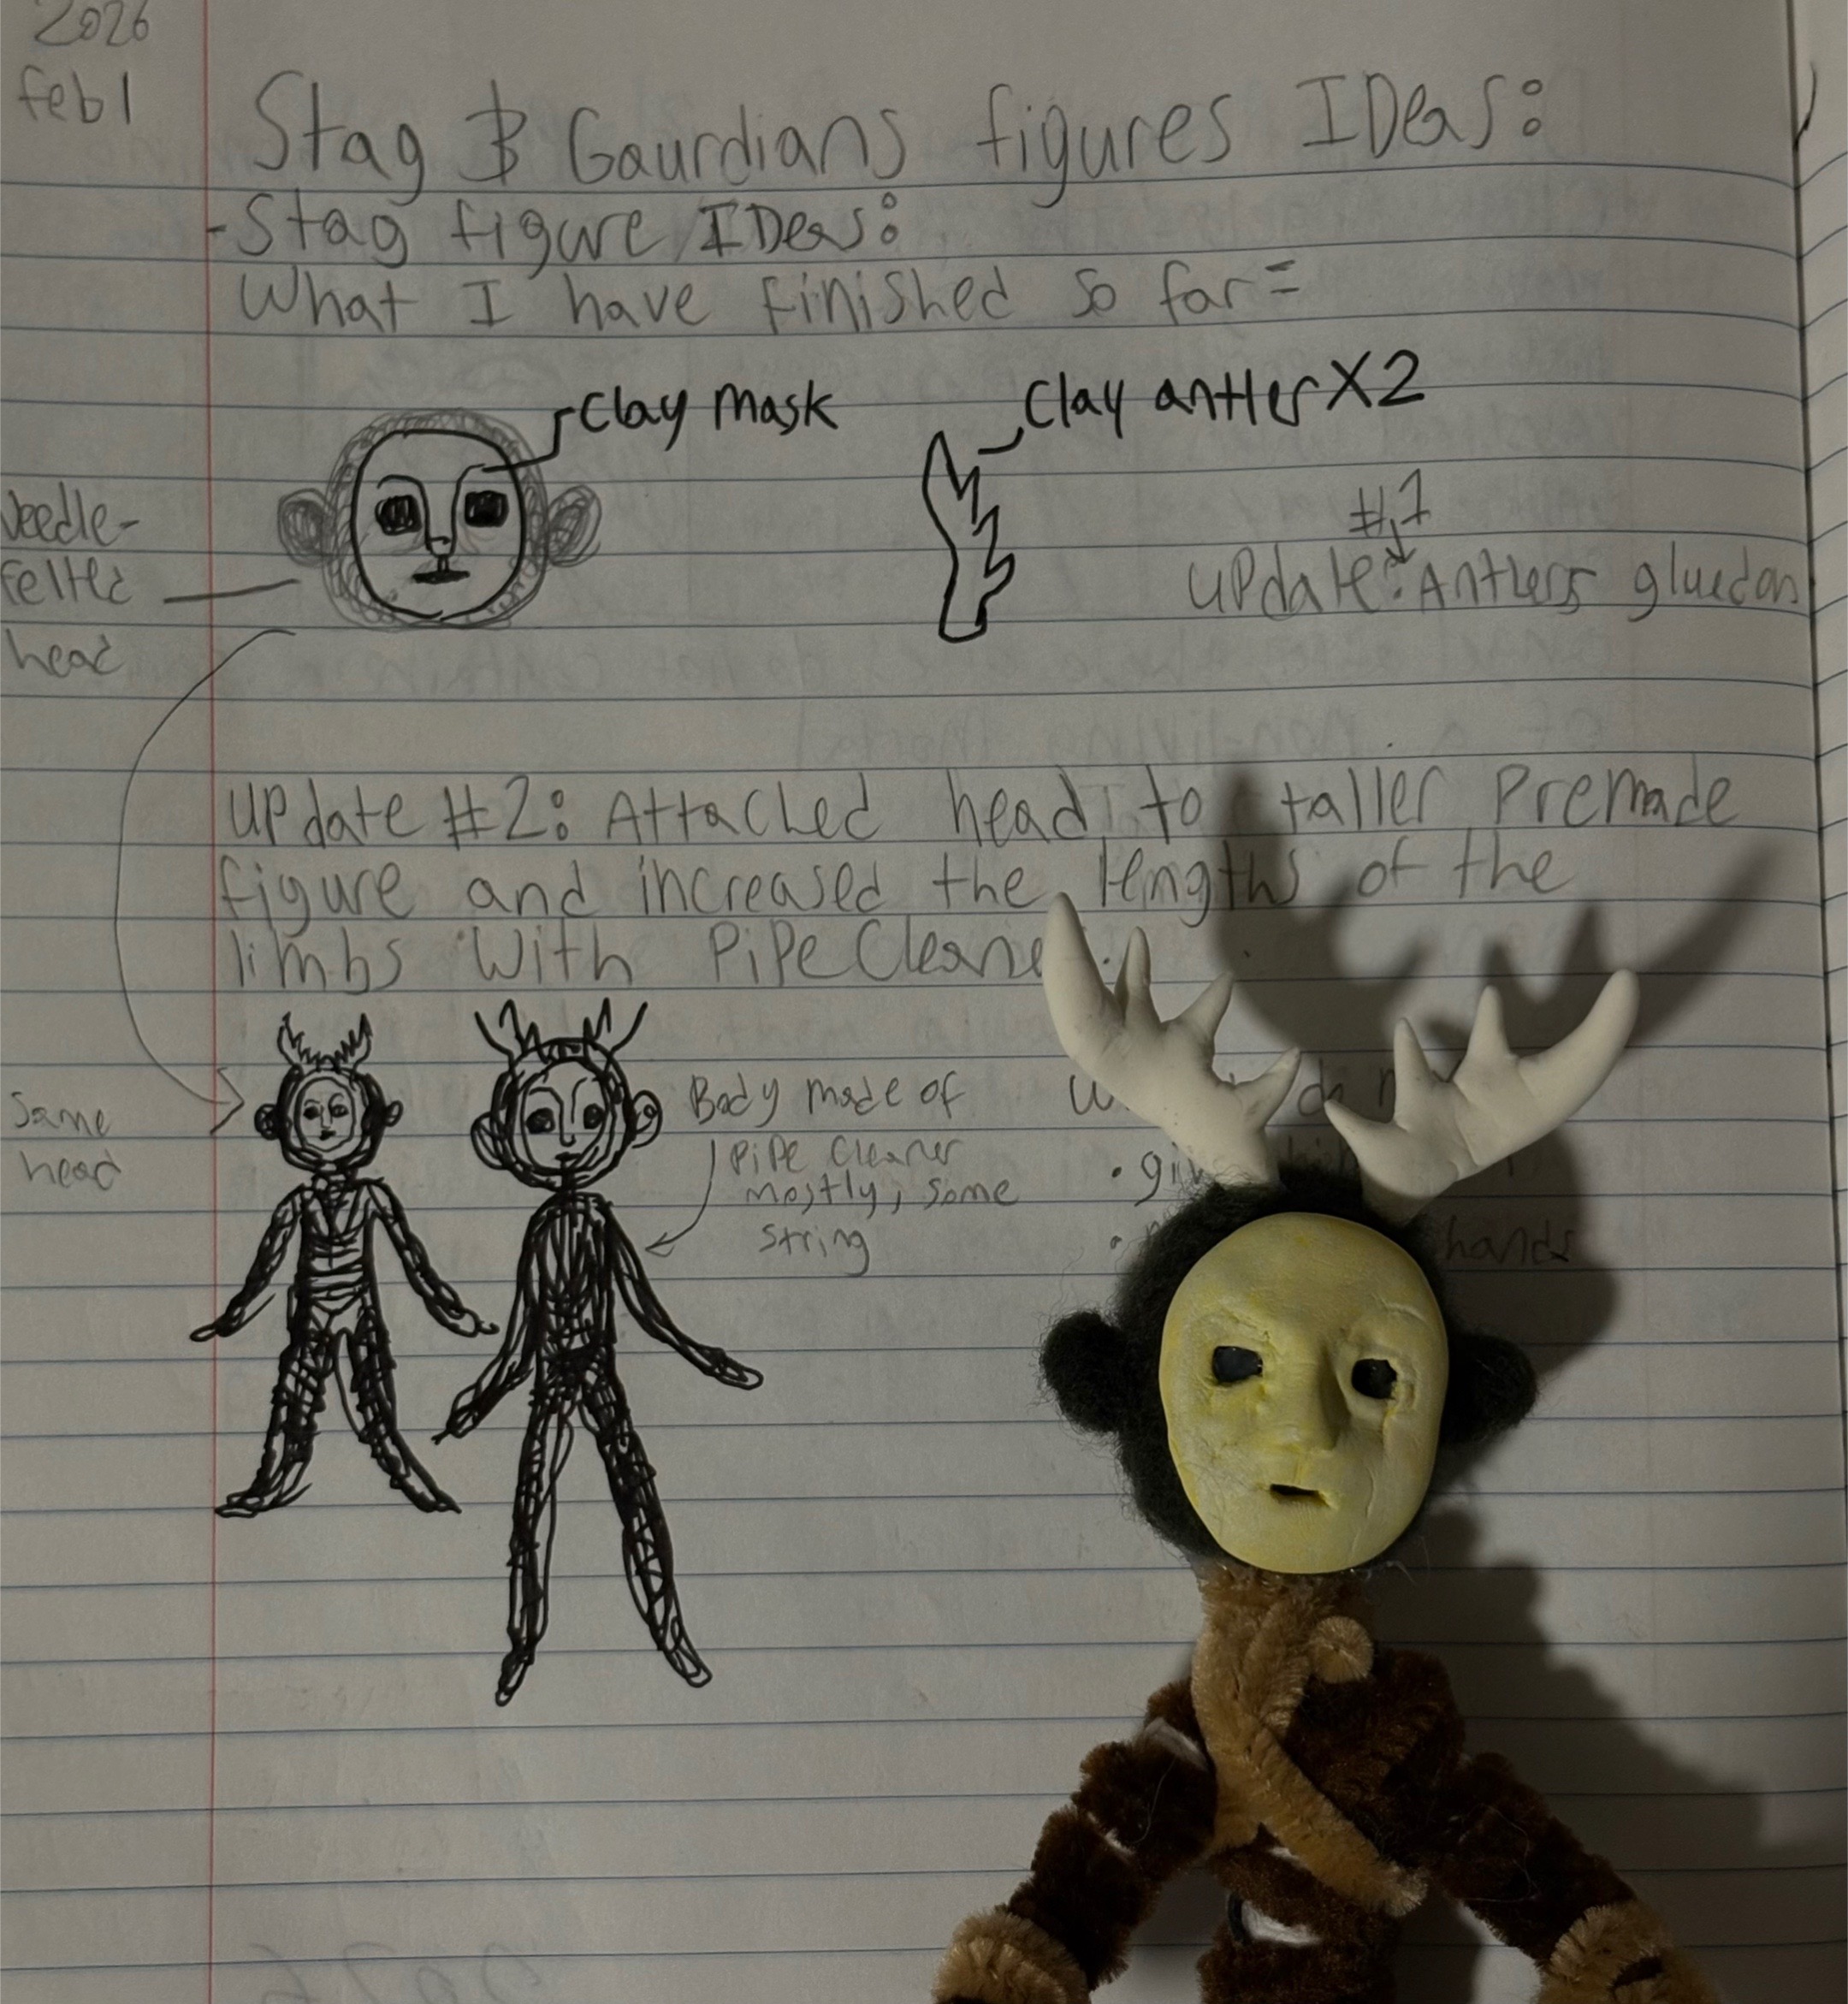 2026
feb 1
Stag & Gaurdians figures IDeas:
-Stag figure IDeas:
What I have finished so far=
Clay Mask
Clay antler X2
Needle-
felted
head
#1
update: Antlers glued on
update #2: Attached head to taller Premade
figure and increased the lengths of the
limbs with PiPe Cleane
Same
head
Body made of
PiPe Cleaner
mostly, some
string
hands